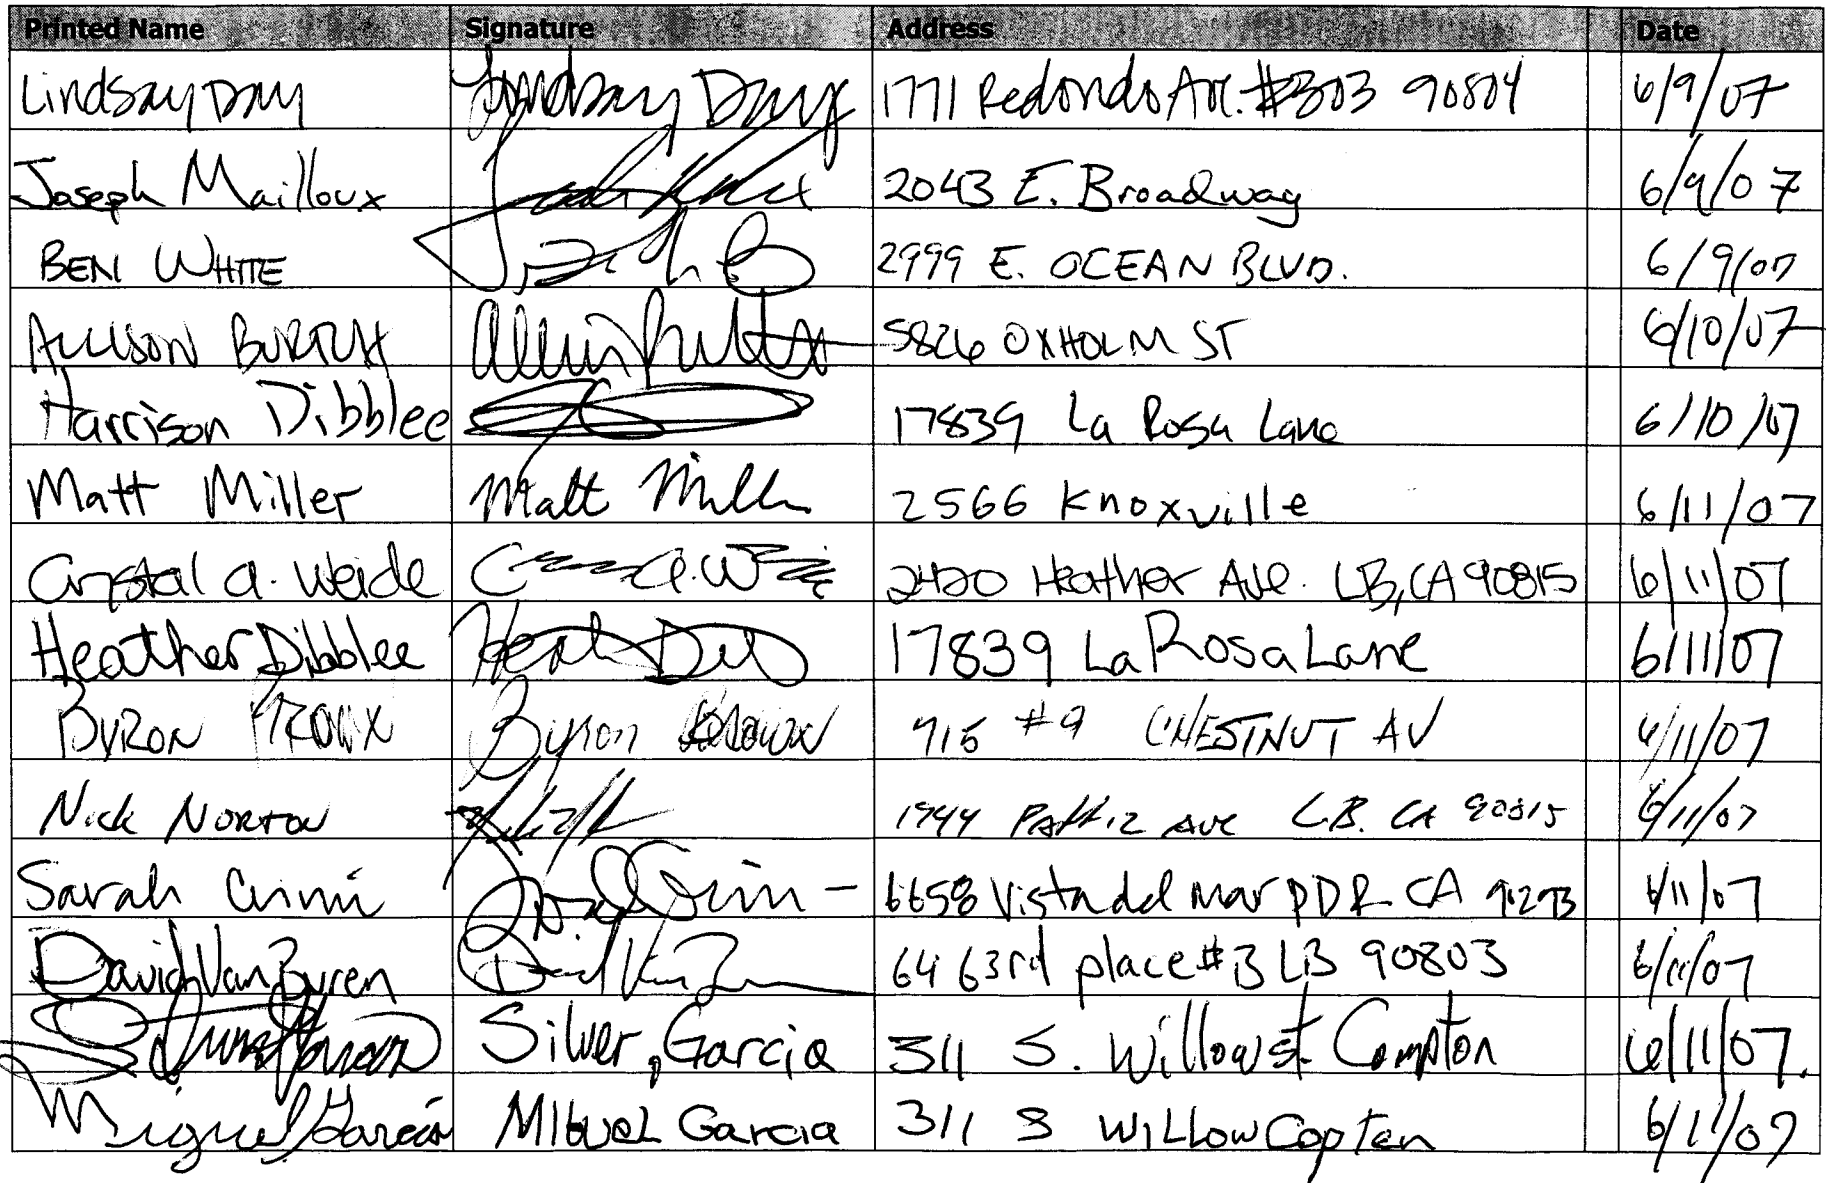 Printed Name Signature Address Date
Lindsay Day Lindsay Day 1771 Redondo Ave. #303 90804 6/9/07
Joseph Mailloux 2043 E. Broadway 6/9/07
BEN WHITE 2999 E. OCEAN BLVD. 6/9/07
ALLISON 5826 OXHOLM ST 6/10/07
Harrison Dibblee 17839 La Rosa Lane 6/10/07
Matt Miller Matt Miller 2566 Knoxville 6/11/07
Crystal A. Weide 2420 Heather Ave. LB, CA 90815 6/11/07
Heather Dibblee 17839 La Rosa Lane 6/11/07
BYRON Byron 915 #9 CHESTNUT AV 6/11/07
Nick NORTON 1944 AVE L.B. CA 90815 6/11/07
Sarah 6658 Vista del Mar PDR CA 90293 6/11/07
David Van Buren 64 63rd place #3 LB 90803 6/11/07
Silver, Garcia 311 S. Willow st. Compton 6/11/07.
Miguel Garcia MIGUEL Garcia 311 S WILLOW Copten 6/11/07